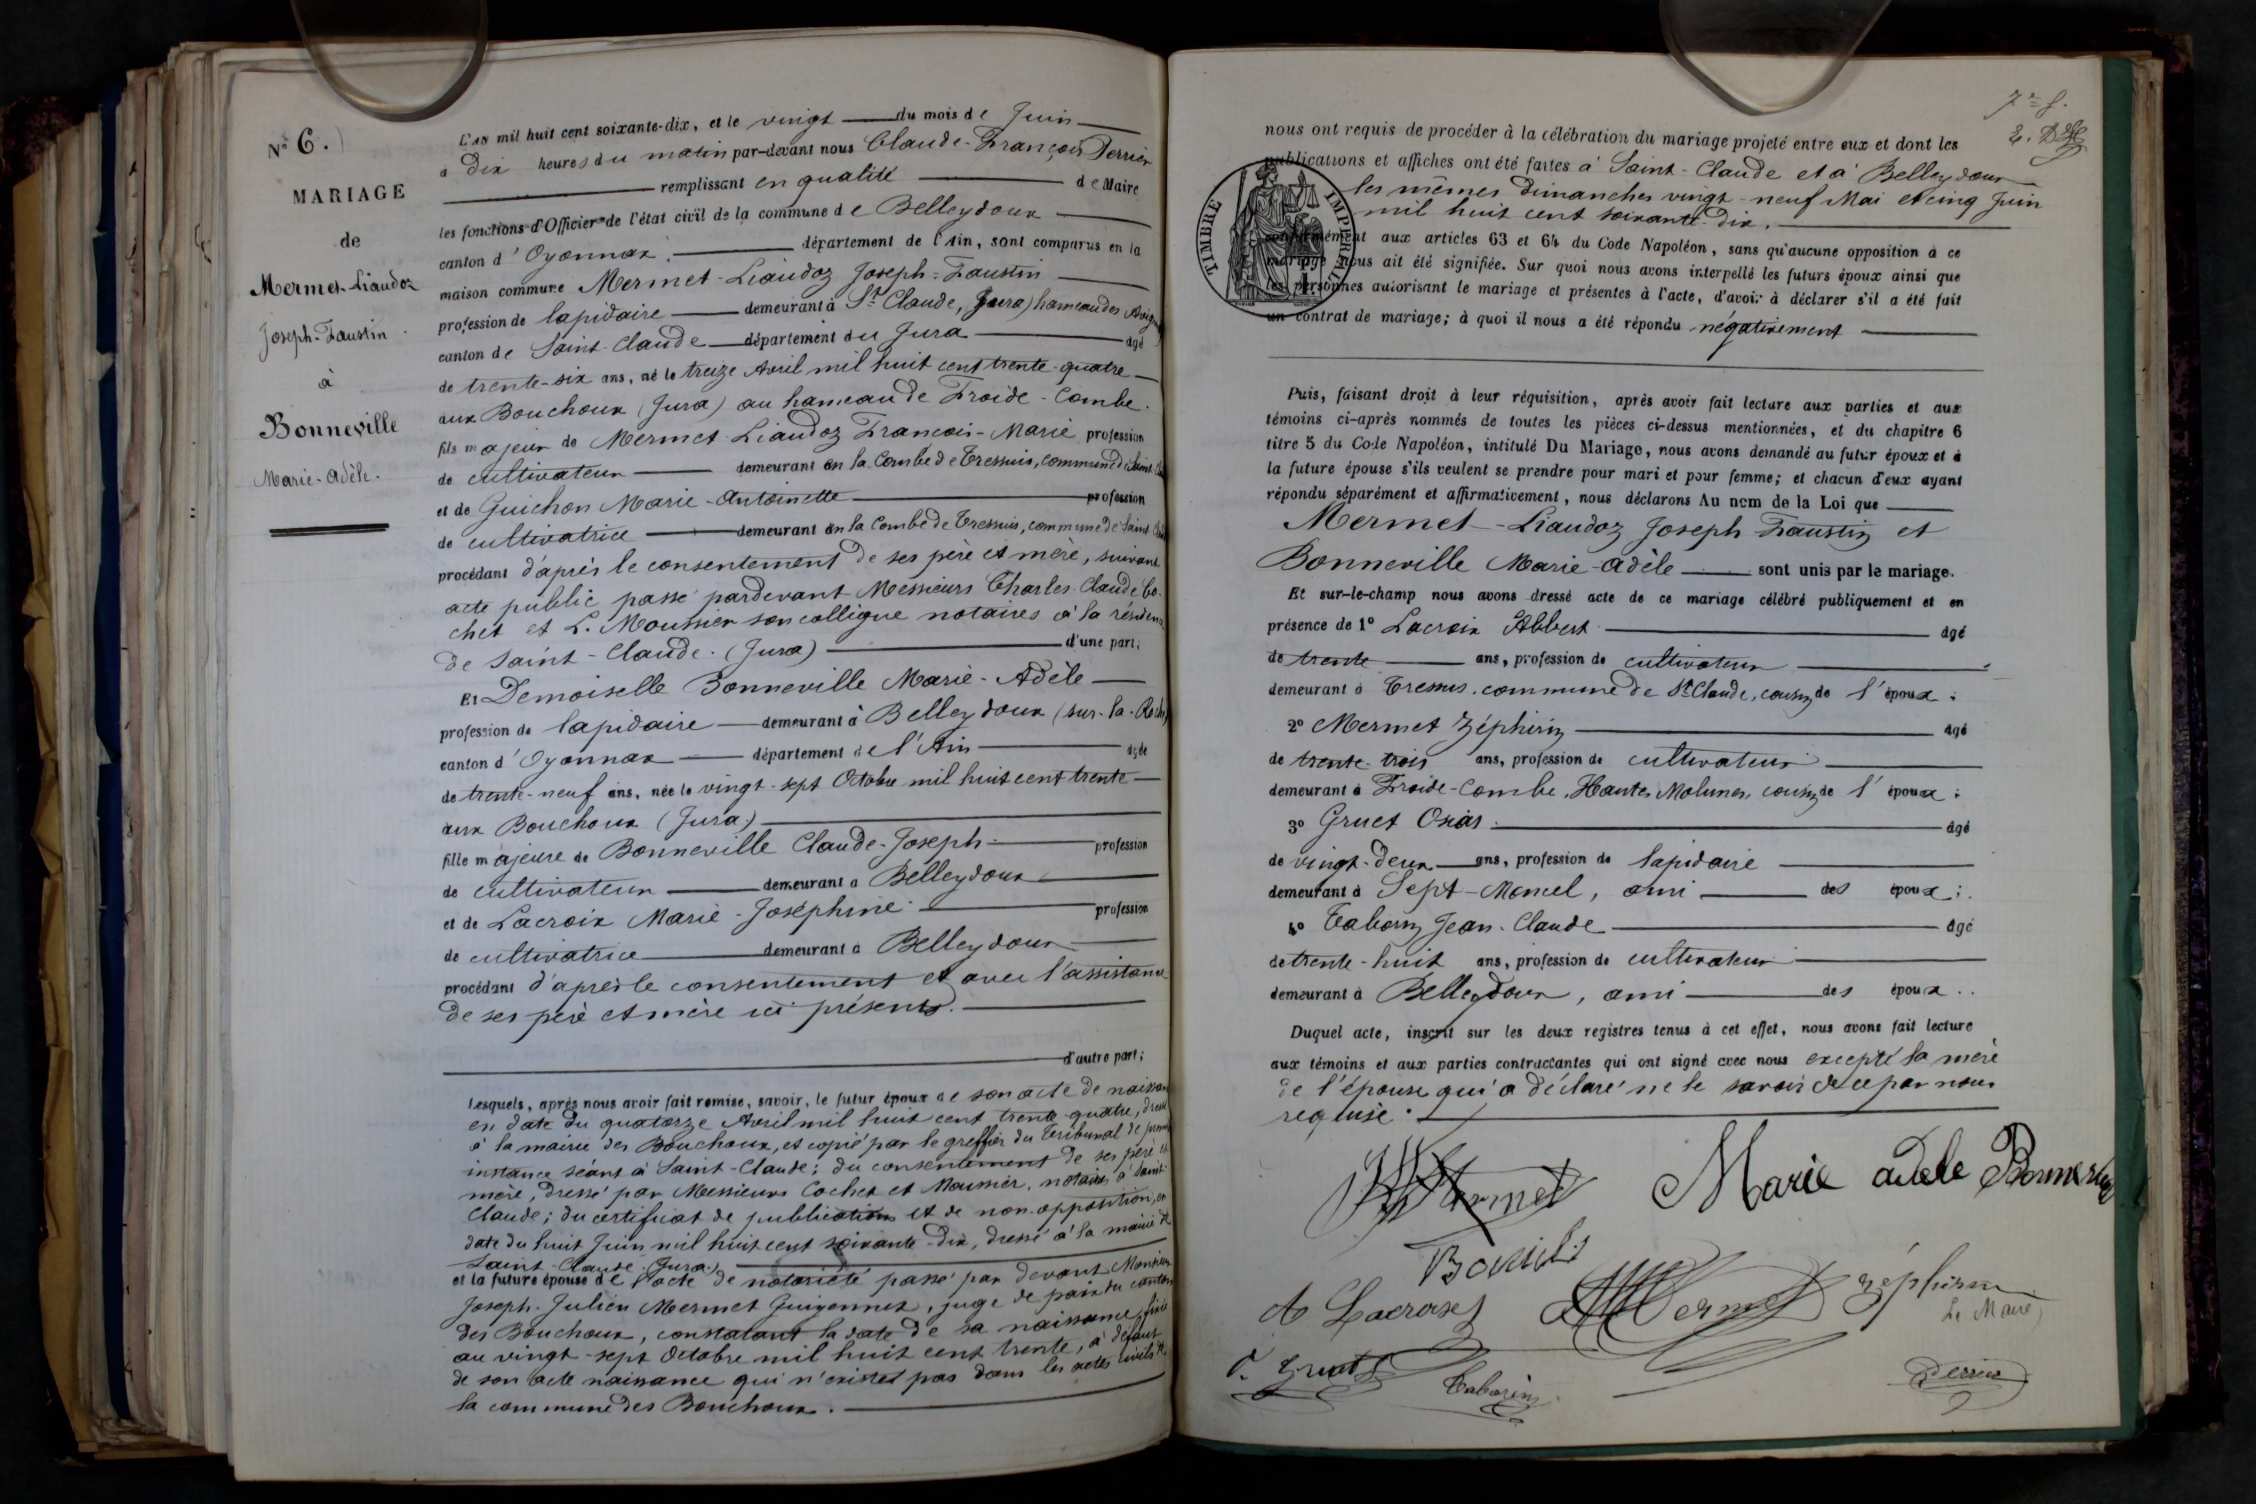 N° 6.
MARIAGE
de
Mermet-Liaudoz
Joseph-Faustin
à
Bonneville
Marie-Adèle.
L'an mil huit cent soixante-dix, et le vingt du mois de Juin
à dix heures du matin par-devant nous Claude-François Perrier
remplissant en qualité de Maire
les fonctions d'Officier de l'état civil de la commune de Belleydoux
canton d'Oyonnax, département de l'Ain, sont comparus en la
maison commune Mermet-Liaudoz Joseph-Faustin
profession de lapidaire demeurant à St Claude, (Jura) hameau des
canton de Saint-Claude département du Jura âgé
de trente-six ans, né le treize Avril mil huit cent trente-quatre
aux Bouchoux (Jura) au hameau de Froide-Combe.
fils majeur de Mermet-Liaudoz François-Marie profession
de cultivateur demeurant en la Combe de Tressus, commune de Saint
et de Guichon Marie-Antoinette profession
de cultivatrice demeurant en la Combe de Tressus, commune de Saint
procédant d'après le consentement de ses père et mère, suivant
acte public passé pardevant Messieurs Charles-Claude Co-
chet et L. Mousnier son collègue notaires à la résidence
de Saint-Claude. (Jura) d'une part;
Et Demoiselle Bonneville Marie-Adèle
profession de lapidaire demeurant à Belleydoux (sur-la-Roche)
canton d'Oyonnax département de l'Ain âgée
de trente-neuf ans, née le vingt-sept Octobre mil huit cent trente
aux Bouchoux (Jura)
fille majeure de Bonneville Claude-Joseph profession
de cultivateur demeurant à Belleydoux
et de Lacroix Marie-Joséphine profession
de cultivatrice demeurant à Belleydoux
procédant d'après le consentement et avec l'assistance
de ses père et mère ici présents.
d'autre part;
Lesquels, après nous avoir fait remise, savoir, le futur époux de son acte de naissance
en date du quatorze Avril mil huit cent trente-quatre, dressé
à la mairie des Bouchoux, et copié par le greffier du Tribunal de
instance séant à Saint-Claude; du consentement de ses père et
mère, dressé par Messieurs Cochet et Mousnier, notaires à Saint-
Claude; du certificat de publication et de non-opposition, en
date du huit Juin mil huit cent soixante-dix, dressé à la mairie de
Saint-Claude (Jura)
et la future épouse de l'acte de notoriété passé par devant Monsieur
Joseph-Julien Mermet Guyonnet, juge de paix du canton
des Bouchoux, constatant la date de sa naissance, fixée
au vingt-sept Octobre mil huit cent trente, à défaut
de son acte naissance qui n'existe pas dans les actes civils de
la commune des Bouchoux.
nous ont requis de procéder à la célébration du mariage projeté entre eux et dont les
publications et affiches ont été faites à Saint-Claude et à Belleydoux
les mêmes dimanches vingt-neuf Mai et cinq Juin
mil huit cent soixante-dix.
TIMBRE IMPÉRIAL
conformément aux articles 63 et 64 du Code Napoléon, sans qu'aucune opposition à ce
mariage nous ait été signifiée. Sur quoi nous avons interpellé les futurs époux ainsi que
les personnes autorisant le mariage et présentes à l'acte, d'avoir à déclarer s'il a été fait
un contrat de mariage; à quoi il nous a été répondu négativement
Puis, faisant droit à leur réquisition, après avoir fait lecture aux parties et aux
témoins ci-après nommés de toutes les pièces ci-dessus mentionnées, et du chapitre 6
titre 5 du Code Napoléon, intitulé Du Mariage, nous avons demandé au futur époux et à
la future épouse s'ils veulent se prendre pour mari et pour femme; et chacun d'eux ayant
répondu séparément et affirmativement, nous déclarons Au nom de la Loi que
Mermet-Liaudoz Joseph Faustin et
Bonneville Marie-Adèle sont unis par le mariage.
Et sur-le-champ nous avons dressé acte de ce mariage célébré publiquement et en
présence de 1° Lacroix Albert âgé
de trente ans, profession de cultivateur
demeurant à Tressus, commune de St Claude, cousin de l'époux;
2° Mermet Zéphirin âgé
de trente-trois ans, profession de cultivateur
demeurant à Froide-Combe, Hautes Molunes, cousin de l'époux;
3° Gruet Osias âgé
de vingt-deux ans, profession de lapidaire
demeurant à Sept-Moncel, ami des époux;
4° Taborin Jean-Claude âgé
de trente-huit ans, profession de cultivateur
demeurant à Belleydoux, ami des époux.
Duquel acte, inscrit sur les deux registres tenus à cet effet, nous avons fait lecture
aux témoins et aux parties contractantes qui ont signé avec nous excepté la mère
de l'épouse qui a déclaré ne le savoir de ce par nous
requise.
Mermet Marie adele Bonneville
A Lacroix Mermet zéphirin
Le Maire,
O. Gruet Taborin Perrier